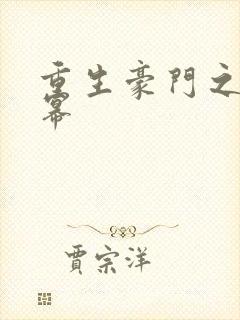 重生豪門之
幕
賈宗洋